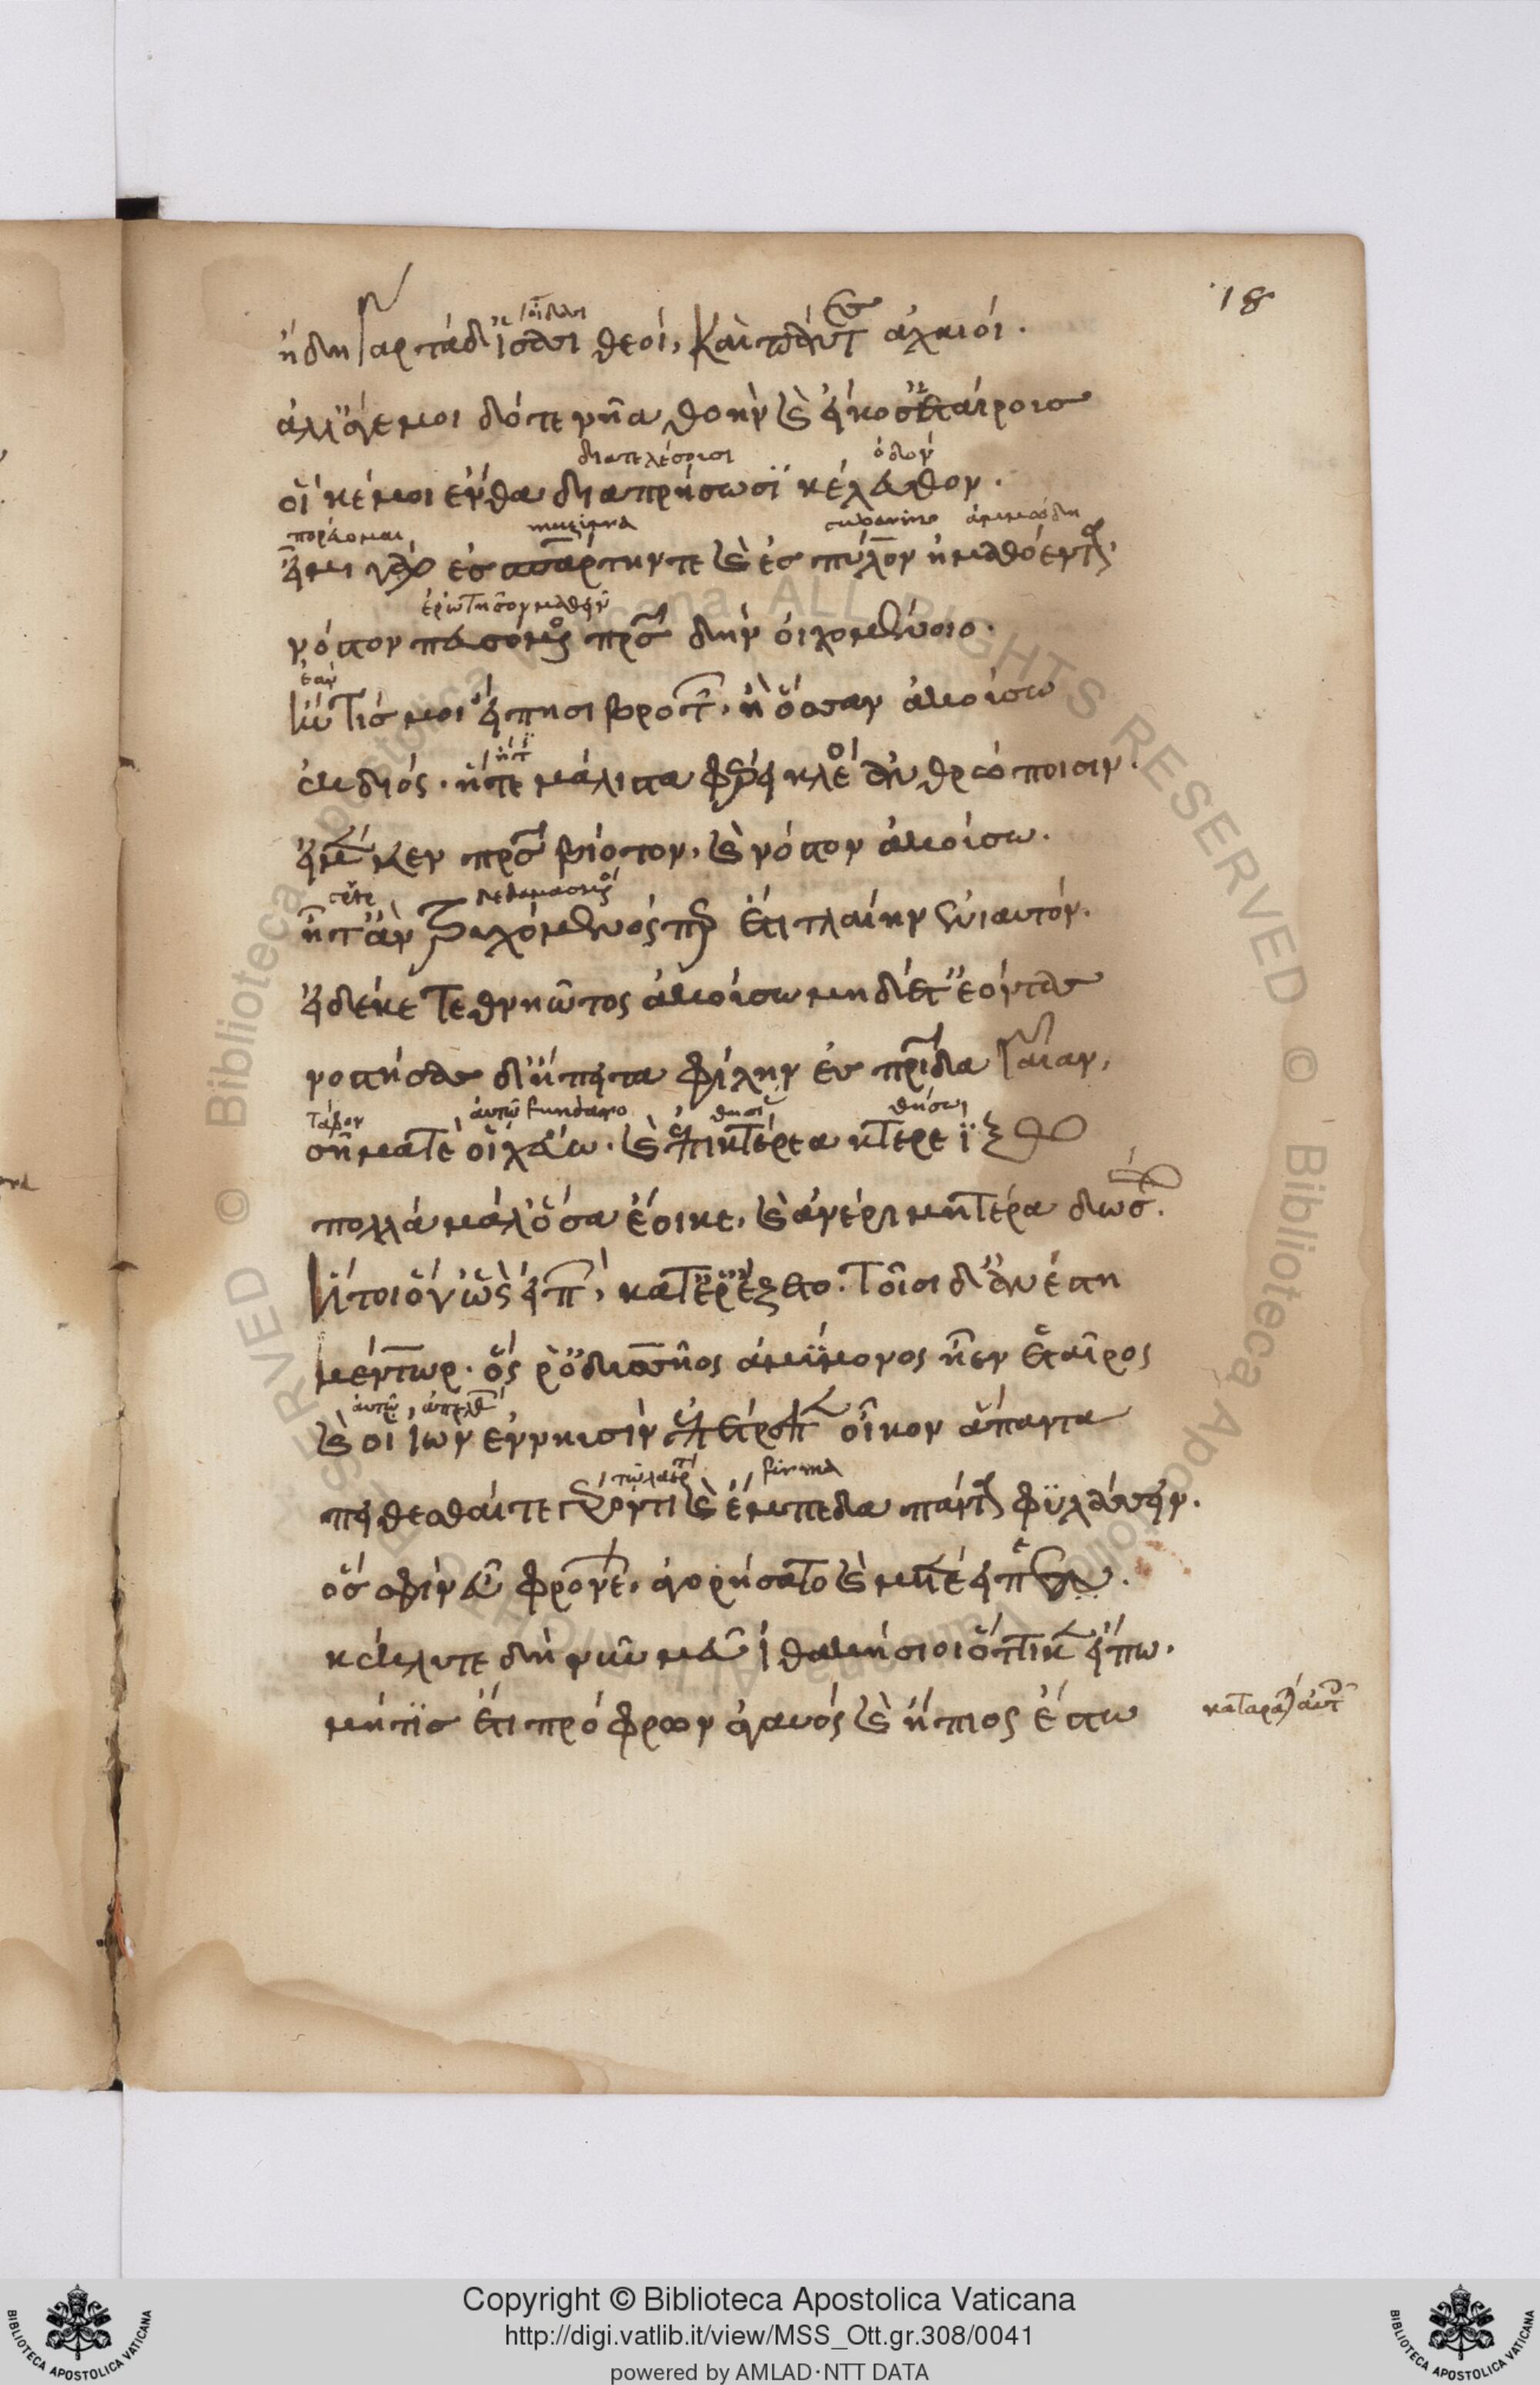 18
ἤδη γὰρ τάδ' ἴσασι θεοί, καὶ πάντες ἀχαιοί.
ἀλλ' ἄγε μοι δότε νῆα θοὴν καὶ εἴκοσ' ἑταίρους
διαπλέσωσι ὁδόν
οἵ κέ μοι ἔνθα διαπρήσωσι κέλευθον.
πορεύσομαι
εἶμι γὰρ ἐς σπάρτην τε καὶ ἐς πύλον ἠμαθόεντα,
νόστον πευσόμενος πατρὸς δὴν οἰχομένοιο.
ἐὰν
ἤν τίς μοι εἴπησι βροτῶν, ἢ ὄσσαν ἀκούσω
ἐκ διός. ἥτε μάλιστα φέρει κλέος ἀνθρώποισιν.
εἰ μέν κεν πατρὸς βίοτον, καὶ νόστον ἀκούσω.
ἦ τ' ἂν τρυχόμενός περ ἔτι τλαίην ἐνιαυτόν.
εἰ δέ κε τεθνηῶτος ἀκούσω μηδ' ἔτ' ἐόντος
νοστήσας δὴ ἔπειτα φίλην ἐς πατρίδα γαῖαν,
τάφον θήσω
σῆμά τέ οἱ χεύω. καὶ ἐπὶ κτέρεα κτερεΐξω
πολλὰ μάλ' ὅσσα ἔοικε, καὶ ἀνέρι μητέρα δώσω.
ἤτοι ὅγ' ὣς εἰπὼν, κατ' ἄρ' ἕζετο. τοῖσι δ' ἀνέστη
μέντωρ. ὅς ῥ' ὀδυσσῆος ἀμύμονος ἦεν ἑταῖρος
καὶ οἱ ἰὼν ἐν νηυσὶν ἐπέτρεπεν οἶκον ἅπαντα
firma
πείθεσθαί τε γέροντι καὶ ἔμπεδα πάντα φυλάσσειν.
ὅς σφιν εὖ φρονέων, ἀγορήσατο καὶ μετέειπεν.
κέκλυτε δὴ νῦν μευ ἰθακήσιοι ὅττι κεν εἴπω.
μή τις ἔτι πρόφρων ἀγανός καὶ ἤπιος ἔστω
Copyright © Biblioteca Apostolica Vaticana
http://digi.vatlib.it/view/MSS_Ott.gr.308/0041
powered by AMLAD·NTT DATA